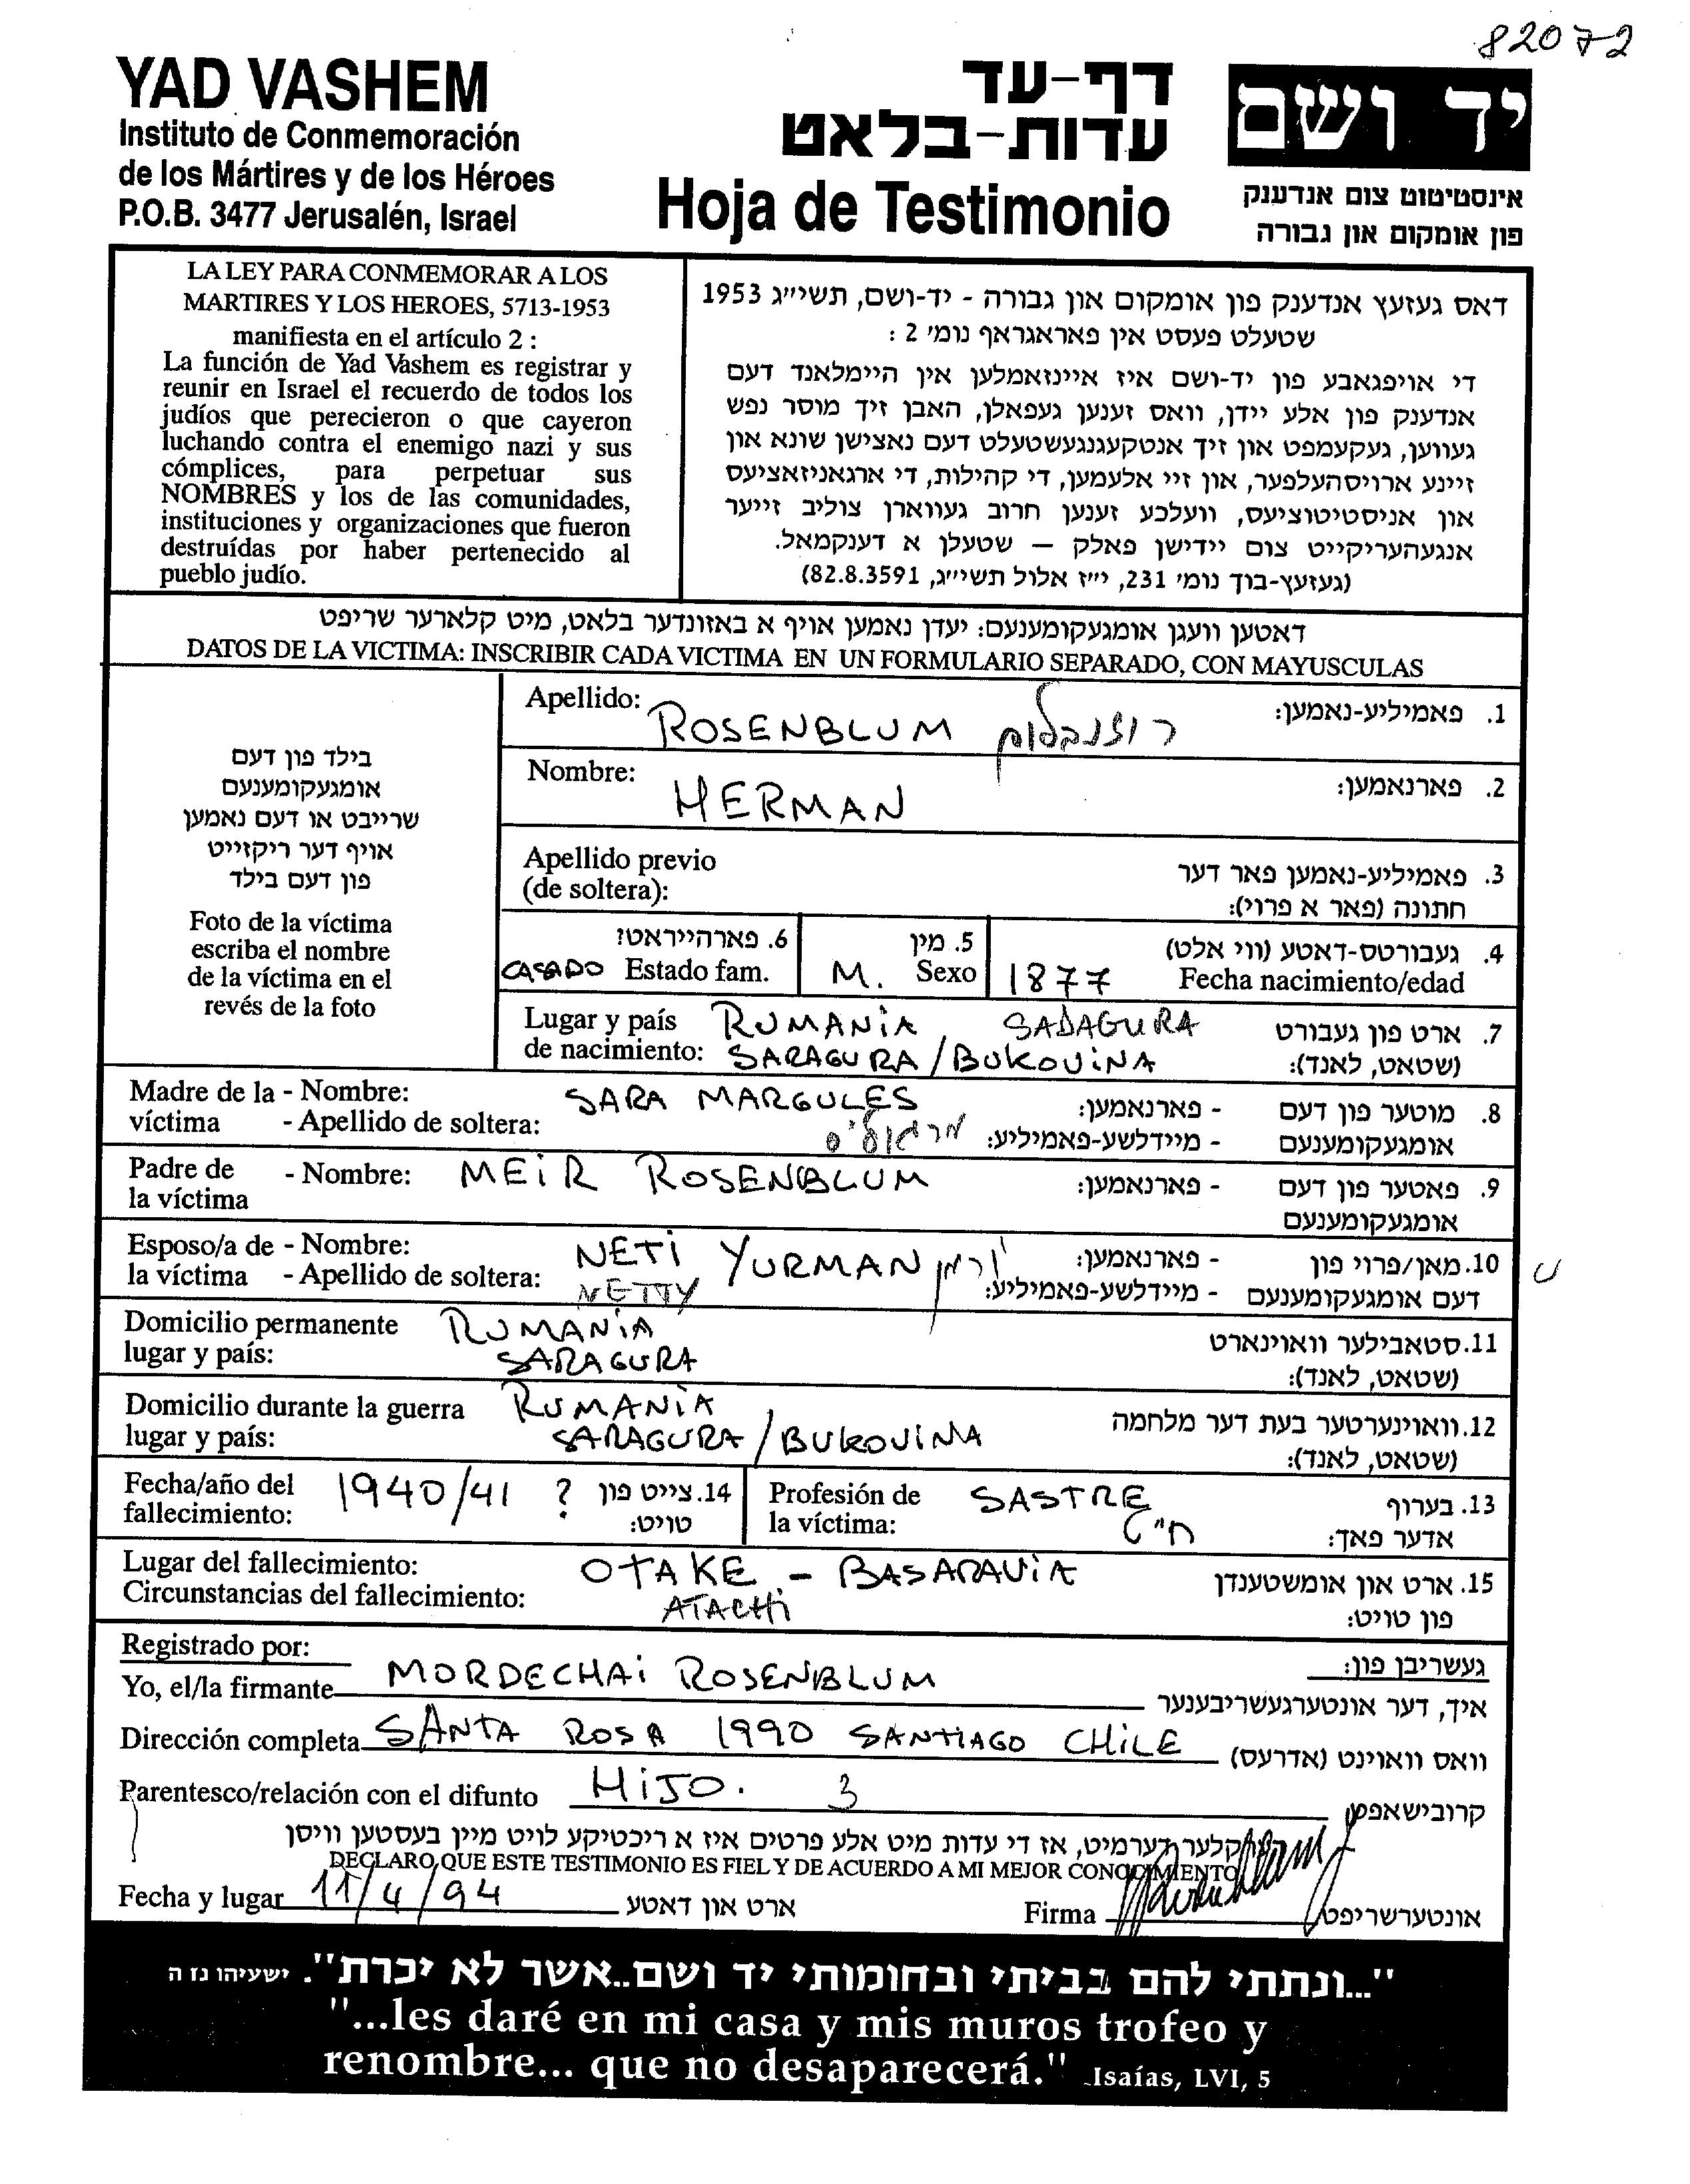 82072
YAD VASHEM
Instituto de Conmemoración
de los Mártires y de los Héroes
P.O.B. 3477 Jerusalén, Israel
דף-עד
עדות-בלאט
Hoja de Testimonio
יד ושם
אינסטיטוט צום אנדענק
פון אומקום און גבורה
LA LEY PARA CONMEMORAR A LOS
MARTIRES Y LOS HEROES, 5713-1953
manifiesta en el artículo 2 :
La función de Yad Vashem es registrar y
reunir en Israel el recuerdo de todos los
judíos que perecieron o que cayeron
luchando contra el enemigo nazi y sus
cómplices, para perpetuar sus
NOMBRES y los de las comunidades,
instituciones y organizaciones que fueron
destruídas por haber pertenecido al
pueblo judío.
דאס געזעץ אנדענק פון אומקום און גבורה - יד-ושם, תשי״ג 1953
שטעלט פעסט אין פאראגראף נומ׳ 2 :
די אויפגאבע פון יד-ושם איז איינזאמלען אין היימלאנד דעם
אנדענק פון אלע יידן, וואס זענען געפאלן, האבן זיך מוסר נפש
געווען, געקעמפט און זיך אנטקעגנגעשטעלט דעם נאצישן שונא און
זיינע ארויסהעלפער, און זיי אלעמען, די קהילות, די ארגאניזאציעס
און אניסטיטוציעס, וועלכע זענען חרוב געווארן צוליב זייער
אנגעהעריקייט צום יידישן פאלק – שטעלן א דענקמאל.
(געזעץ-בוך נומ׳ 231, י״ז אלול תשי״ג, 82.8.3591)
דאטען וועגן אומגעקומענעם: יעדן נאמען אויף א באזונדער בלאט, מיט קלארער שריפט
DATOS DE LA VICTIMA: INSCRIBIR CADA VICTIMA EN UN FORMULARIO SEPARADO, CON MAYUSCULAS
בילד פון דעם
אומגעקומענעם
שרייבט או דעם נאמען
אויף דער ריקזייט
פון דעם בילד
Foto de la víctima
escriba el nombre
de la víctima en el
revés de la foto
Apellido: ROSENBLUM רוזנבלום 1. פאמיליע-נאמען:
Nombre: HERMAN 2. פארנאמען:
Apellido previo
(de soltera):
3. פאמיליע-נאמען פאר דער
חתונה (פאר א פרוי):
6. פארהייראט?
CASADO Estado fam.
5. מין
M. Sexo
4. געבורטס-דאטע (ווי אלט)
1877 Fecha nacimiento/edad
Lugar y país RUMANIA SADAGURA
de nacimiento: SARAGURA / BUKOVINA
7. ארט פון געבורט
(שטאט, לאנד):
Madre de la - Nombre: SARA MARGULES
víctima - Apellido de soltera: מרגוליס
8. מוטער פון דעם - פארנאמען:
אומגעקומענעם - מיידלשע-פאמיליע:
Padre de - Nombre: MEIR ROSENBLUM
la víctima
9. פאטער פון דעם - פארנאמען:
אומגעקומענעם
Esposo/a de - Nombre: NETI YURMAN יורמן
la víctima - Apellido de soltera: NETTY
10. מאן/פרוי פון - פארנאמען:
דעם אומגעקומענעם - מיידלשע-פאמיליע:
Domicilio permanente RUMANIA
lugar y país: SARAGURA
11. סטאבילער וואוינארט
(שטאט, לאנד):
Domicilio durante la guerra RUMANIA
lugar y país: SARAGURA / BUKOVINA
12. וואוינערטער בעת דער מלחמה
(שטאט, לאנד):
Fecha/año del 1940/41 ?
fallecimiento:
14. צייט פון
טויט:
Profesión de SASTRE
la víctima: חייט
13. בערוף
אדער פאך:
Lugar del fallecimiento: OTAKE - BASARAVIA
Circunstancias del fallecimiento: ATACHI
15. ארט און אומשטענדן
פון טויט:
Registrado por: געשריבן פון:
Yo, el/la firmante MORDECHAI ROSENBLUM איך, דער אונטערגעשריבענער
Dirección completa SANTA ROSA 1990 SANTIAGO CHILE וואס וואוינט (אדרעס)
Parentesco/relación con el difunto HIJO. 3 קרובישאפט
דערקלער דערמיט, אז די עדות מיט אלע פרטים איז א ריכטיקע לויט מיין בעסטען וויסן
DECLARO QUE ESTE TESTIMONIO ES FIEL Y DE ACUERDO A MI MEJOR CONOCIMIENTO
Fecha y lugar 11/4/94 ארט און דאטע Firma אונטערשריפט
"...ונתתי להם בביתי ובחומותי יד ושם..אשר לא יכרת". ישעיהו נז ה
"...les daré en mi casa y mis muros trofeo y
renombre... que no desaparecerá." Isaías, LVI, 5